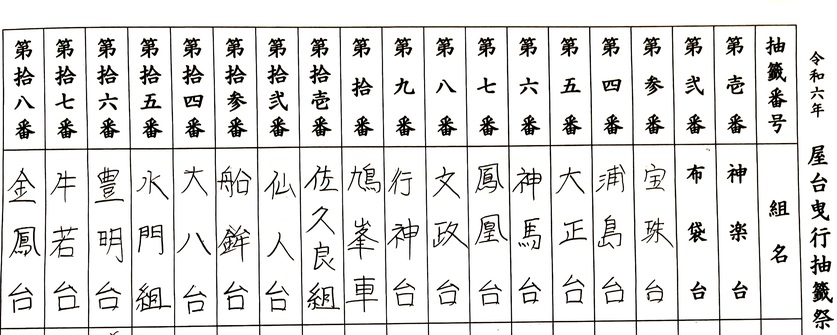 令和六年 屋台曳行抽籤祭
抽籤番号 組名
第壱番 神楽台
第弐番 布袋台
第参番 宝珠台
第四番 浦島台
第五番 大正台
第六番 神馬台
第七番 鳳凰台
第八番 文政台
第九番 行神台
第拾番 鳩峯車
第拾壱番 佐久良組
第拾弐番 仙人台
第拾参番 船鉾台
第拾四番 大八台
第拾五番 水門組
第拾六番 豊明台
第拾七番 牛若台
第拾八番 金鳳台